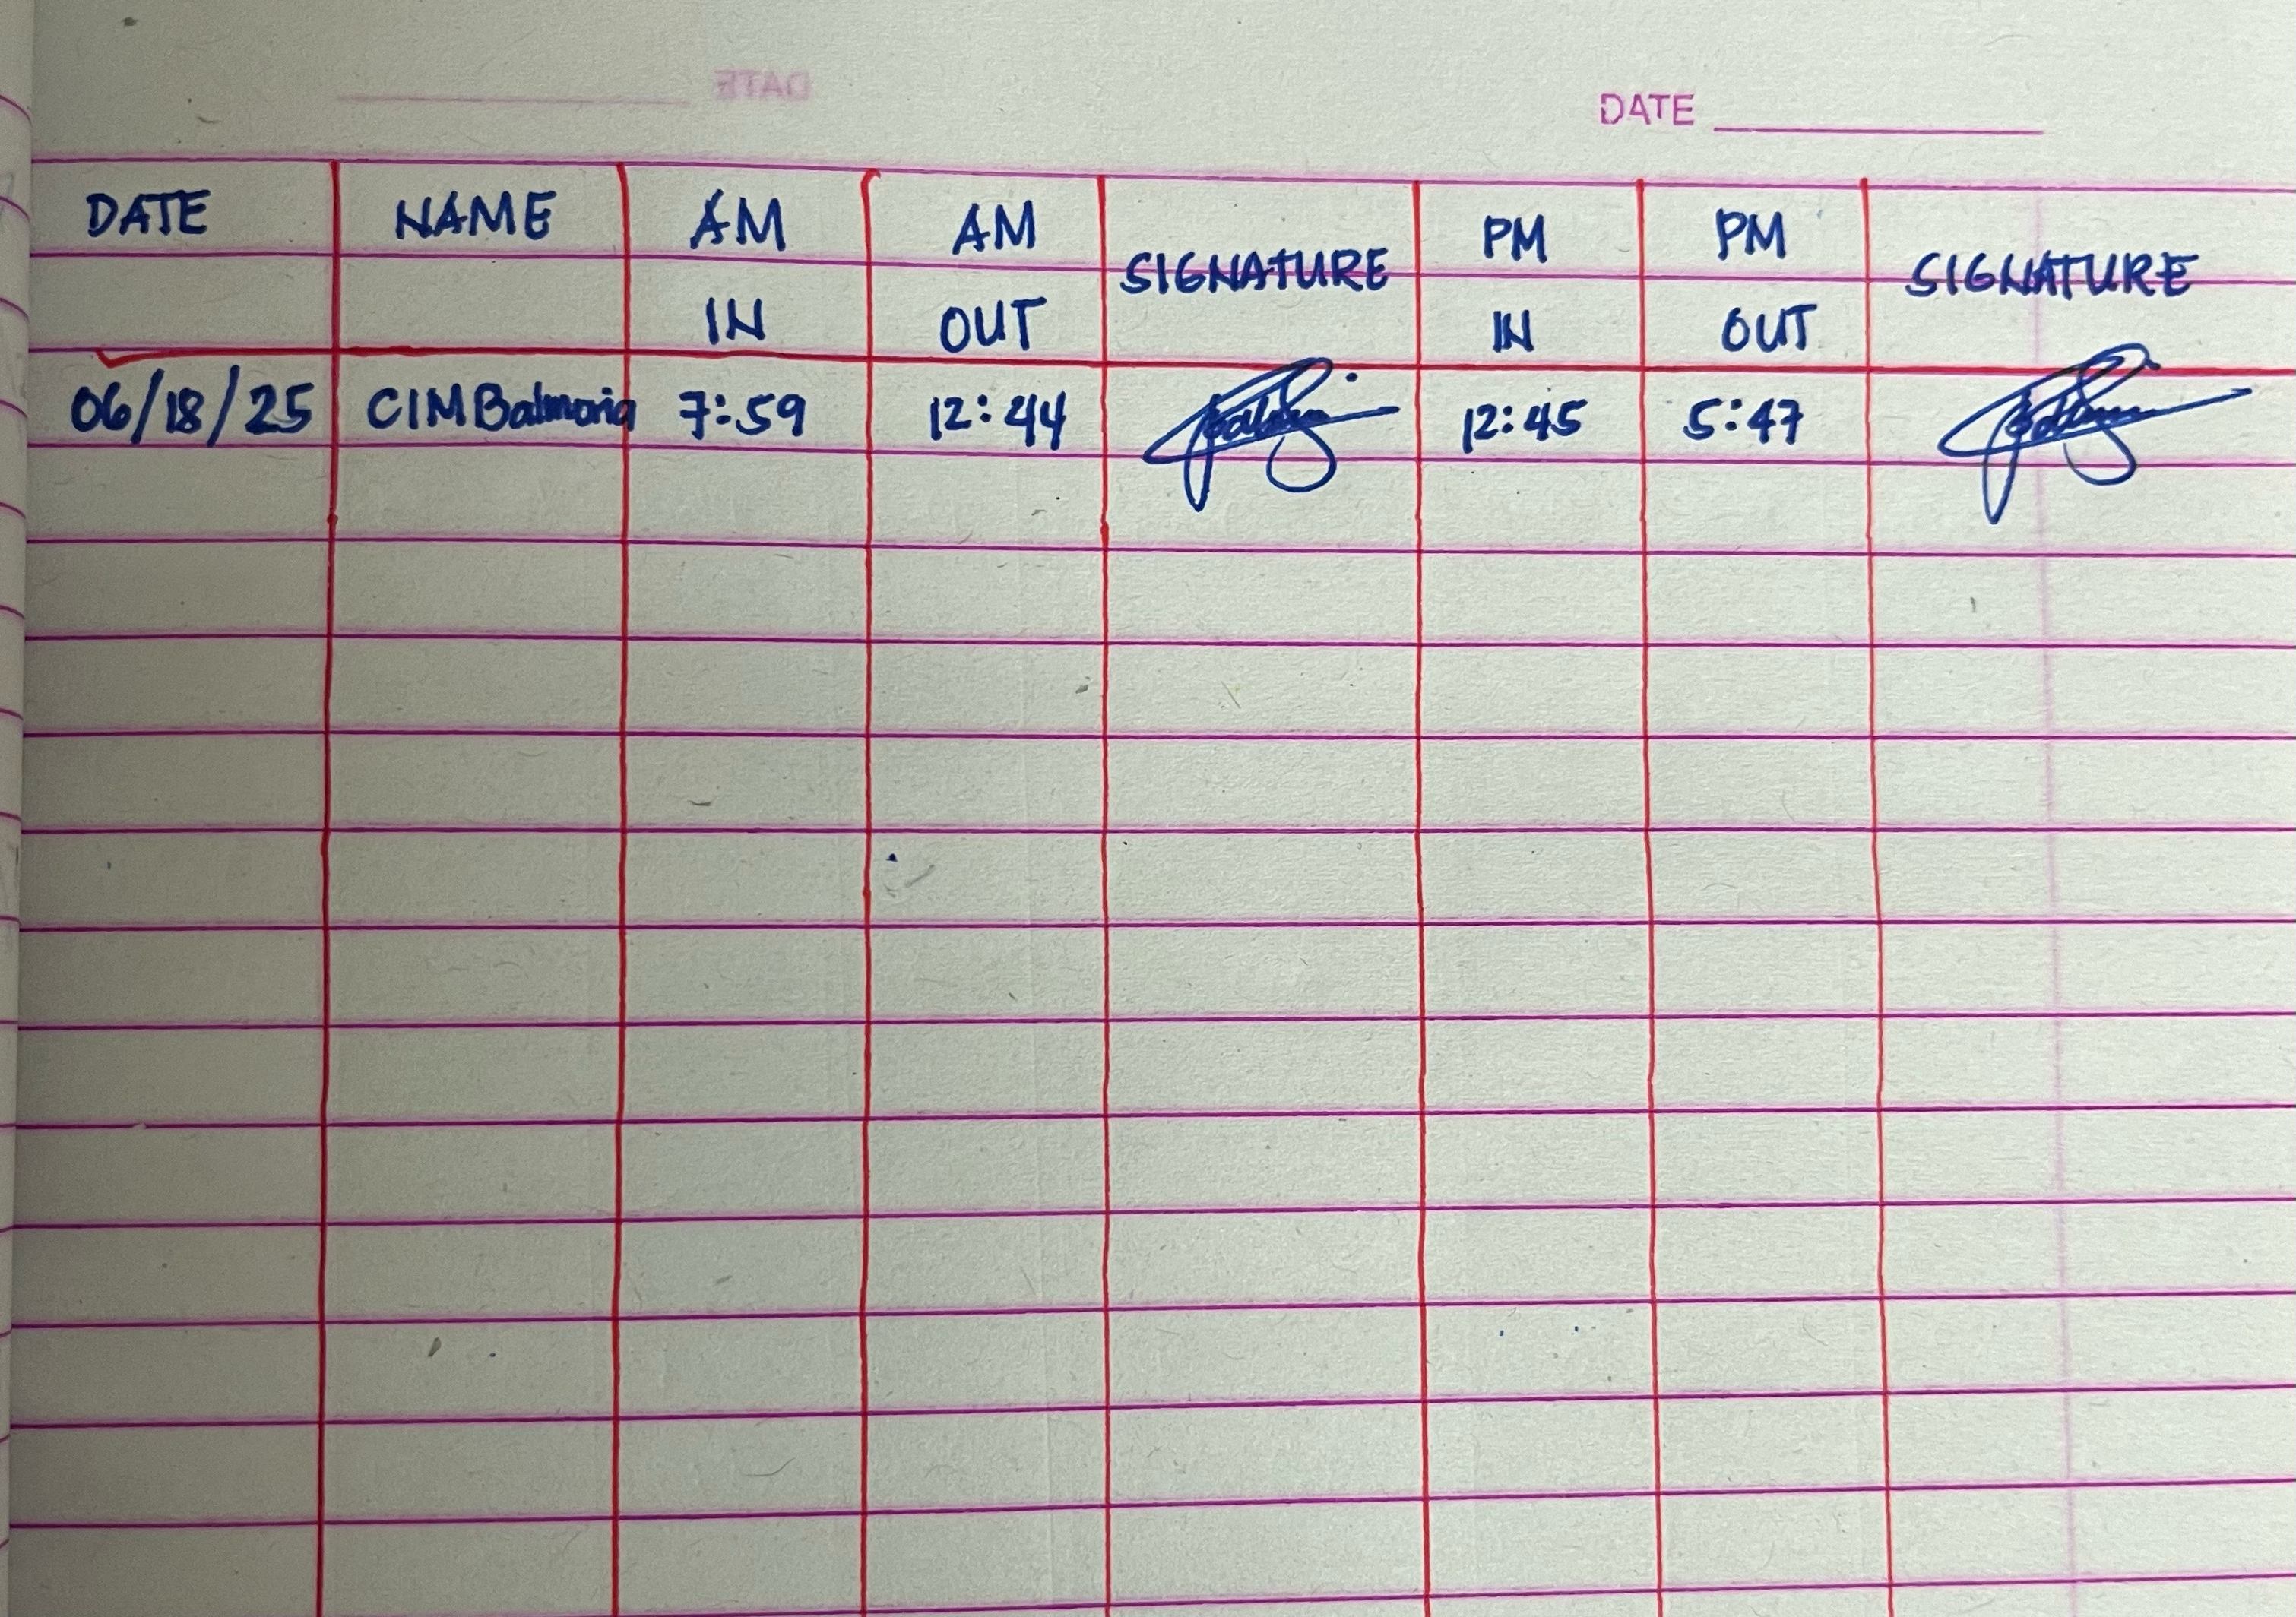 DATE
DATE NAME AM IN AM OUT SIGNATURE PM IN PM OUT SIGNATURE
06/18/25 CIMBalmoria 7:59 12:44 12:45 5:47